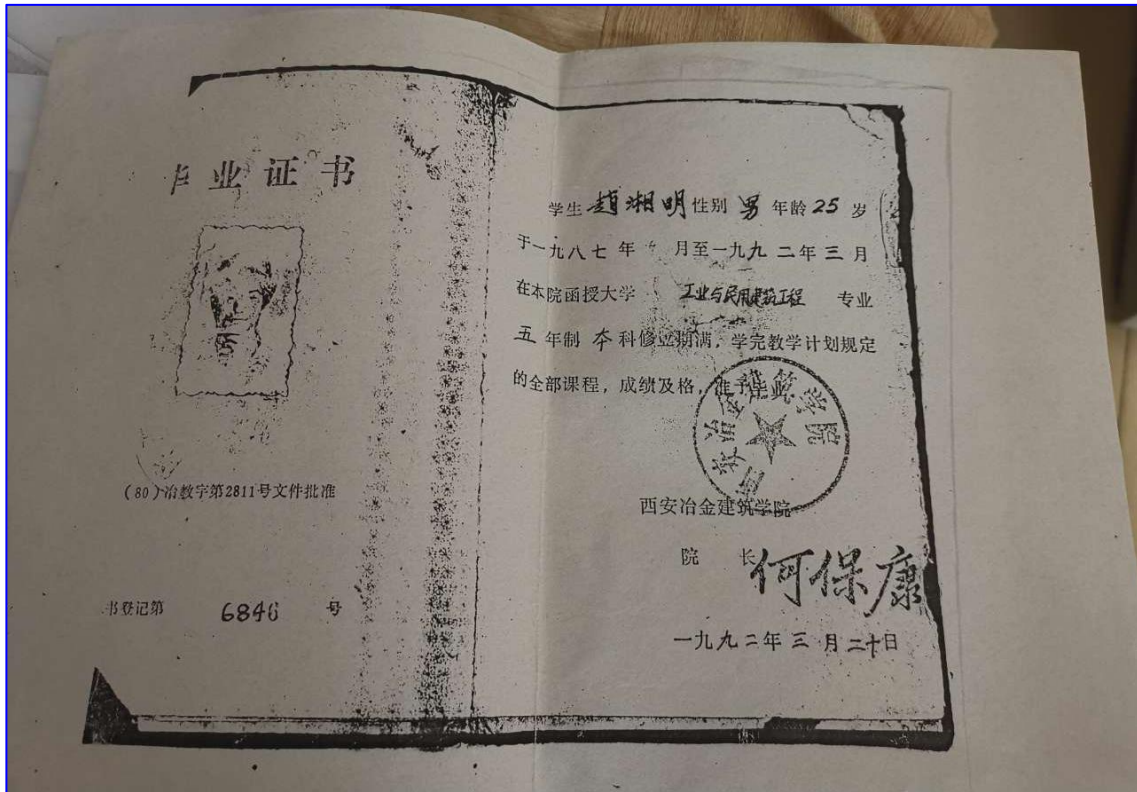 毕业证书
(80)冶教字第2811号文件批准
书登记第 6846 号
学生 趙湘明 性别 男 年龄 25 岁
于一九八七年 月至一九九二年三月
在本院函授大学 工业与民用建筑工程 专业
五年制 本科修业期满，学完教学计划规定
的全部课程，成绩及格，准予毕业
西安冶金建筑学院
西安冶金建筑学院
院 长 何保康
一九九二年三月二十日